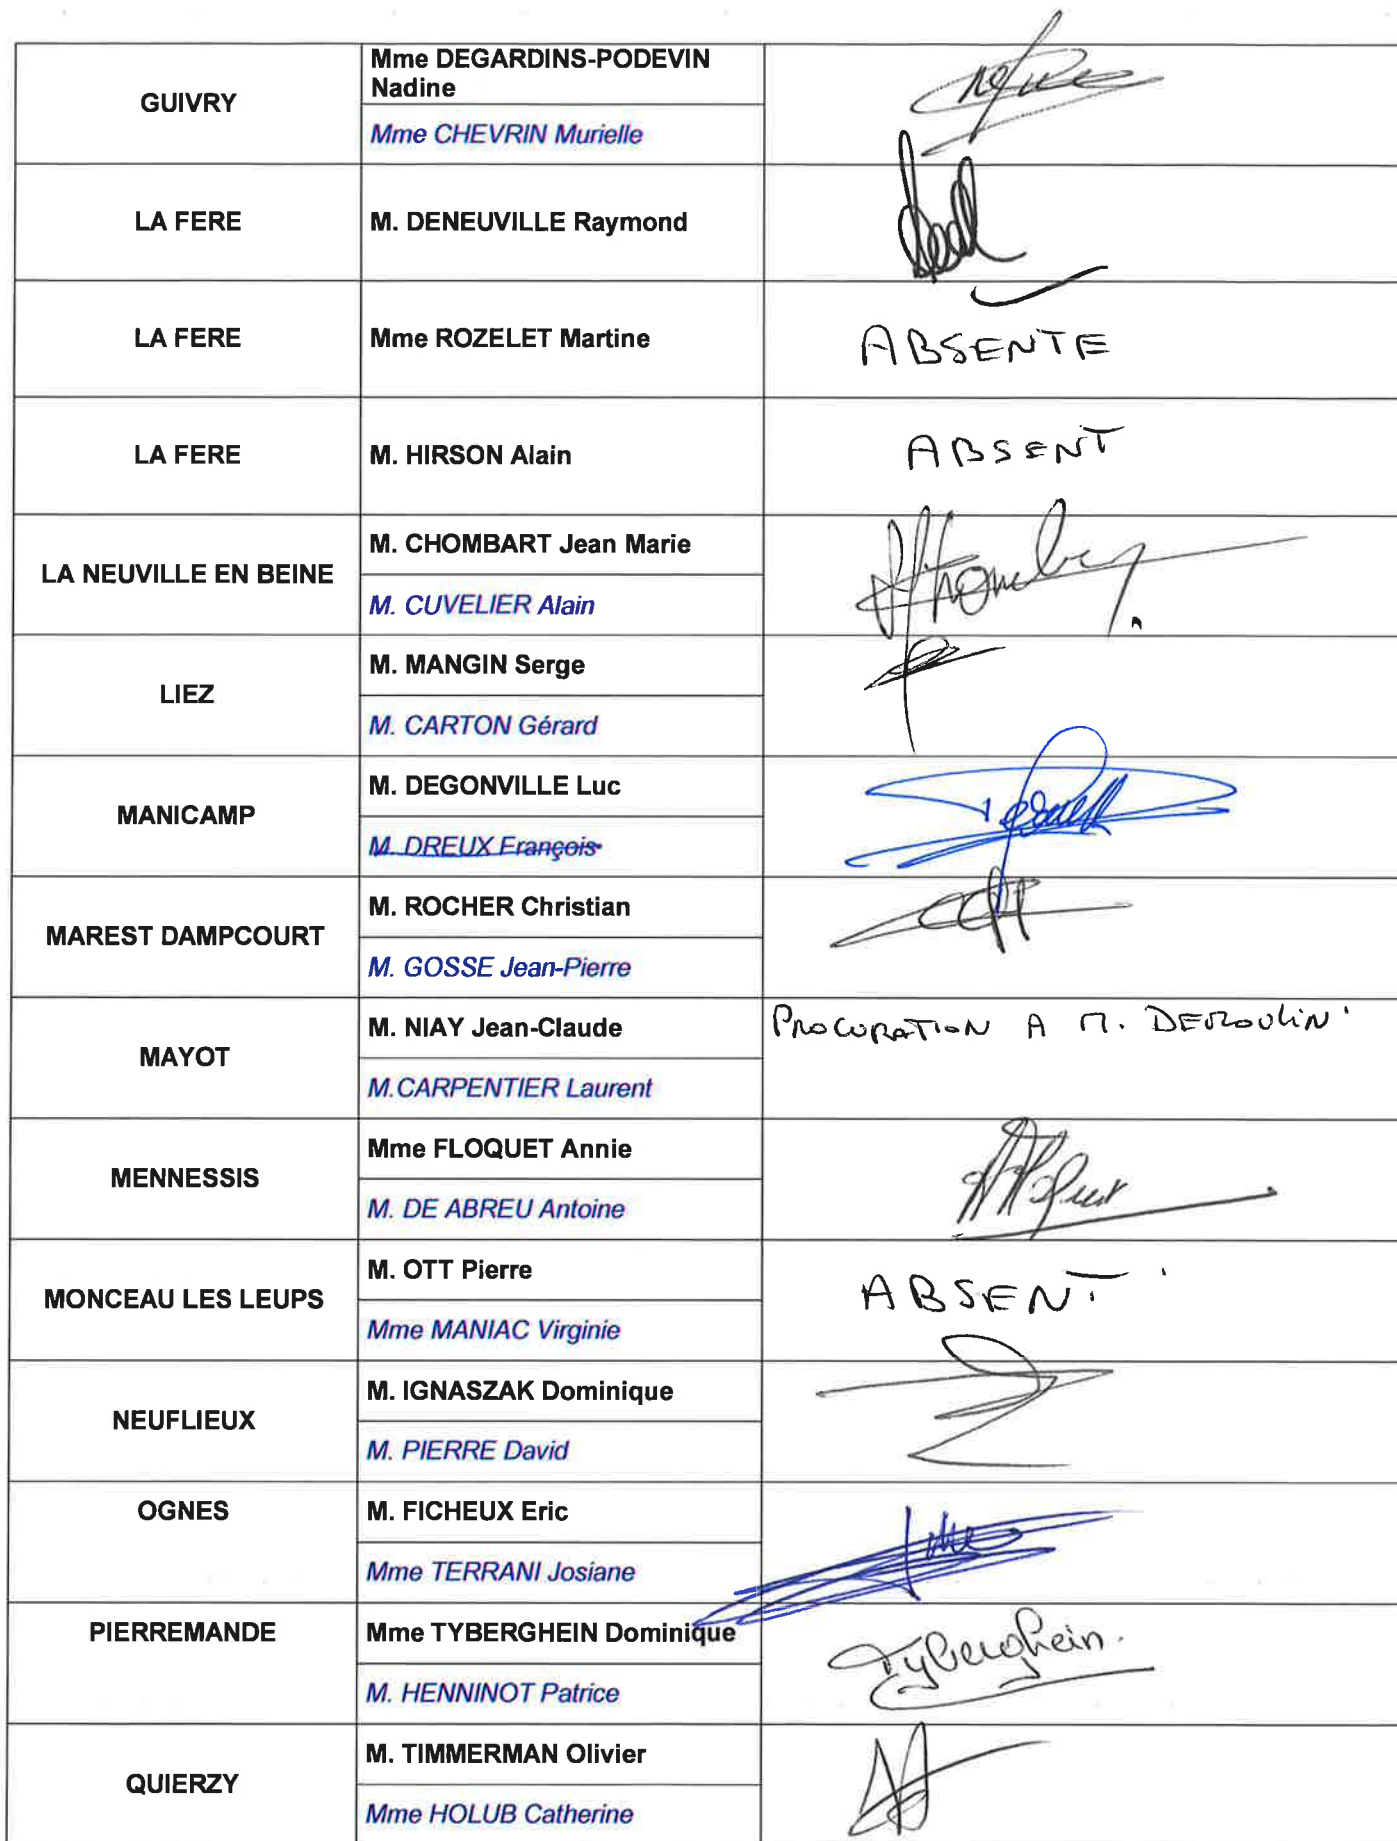 GUIVRY
Mme DEGARDINS-PODEVIN
Nadine
Mme CHEVRIN Murielle
LA FERE
M. DENEUVILLE Raymond
LA FERE
Mme ROZELET Martine
ABSENTE
LA FERE
M. HIRSON Alain
ABSENT
LA NEUVILLE EN BEINE
M. CHOMBART Jean Marie
M. CUVELIER Alain
LIEZ
M. MANGIN Serge
M. CARTON Gérard
MANICAMP
M. DEGONVILLE Luc
M. DREUX François
MAREST DAMPCOURT
M. ROCHER Christian
M. GOSSE Jean-Pierre
MAYOT
M. NIAY Jean-Claude
PROCURATION A M.
M.CARPENTIER Laurent
MENNESSIS
Mme FLOQUET Annie
M. DE ABREU Antoine
MONCEAU LES LEUPS
M. OTT Pierre
ABSENT
Mme MANIAC Virginie
NEUFLIEUX
M. IGNASZAK Dominique
M. PIERRE David
OGNES
M. FICHEUX Eric
Mme TERRANI Josiane
PIERREMANDE
Mme TYBERGHEIN Dominique
Tyberghein.
M. HENNINOT Patrice
QUIERZY
M. TIMMERMAN Olivier
Mme HOLUB Catherine